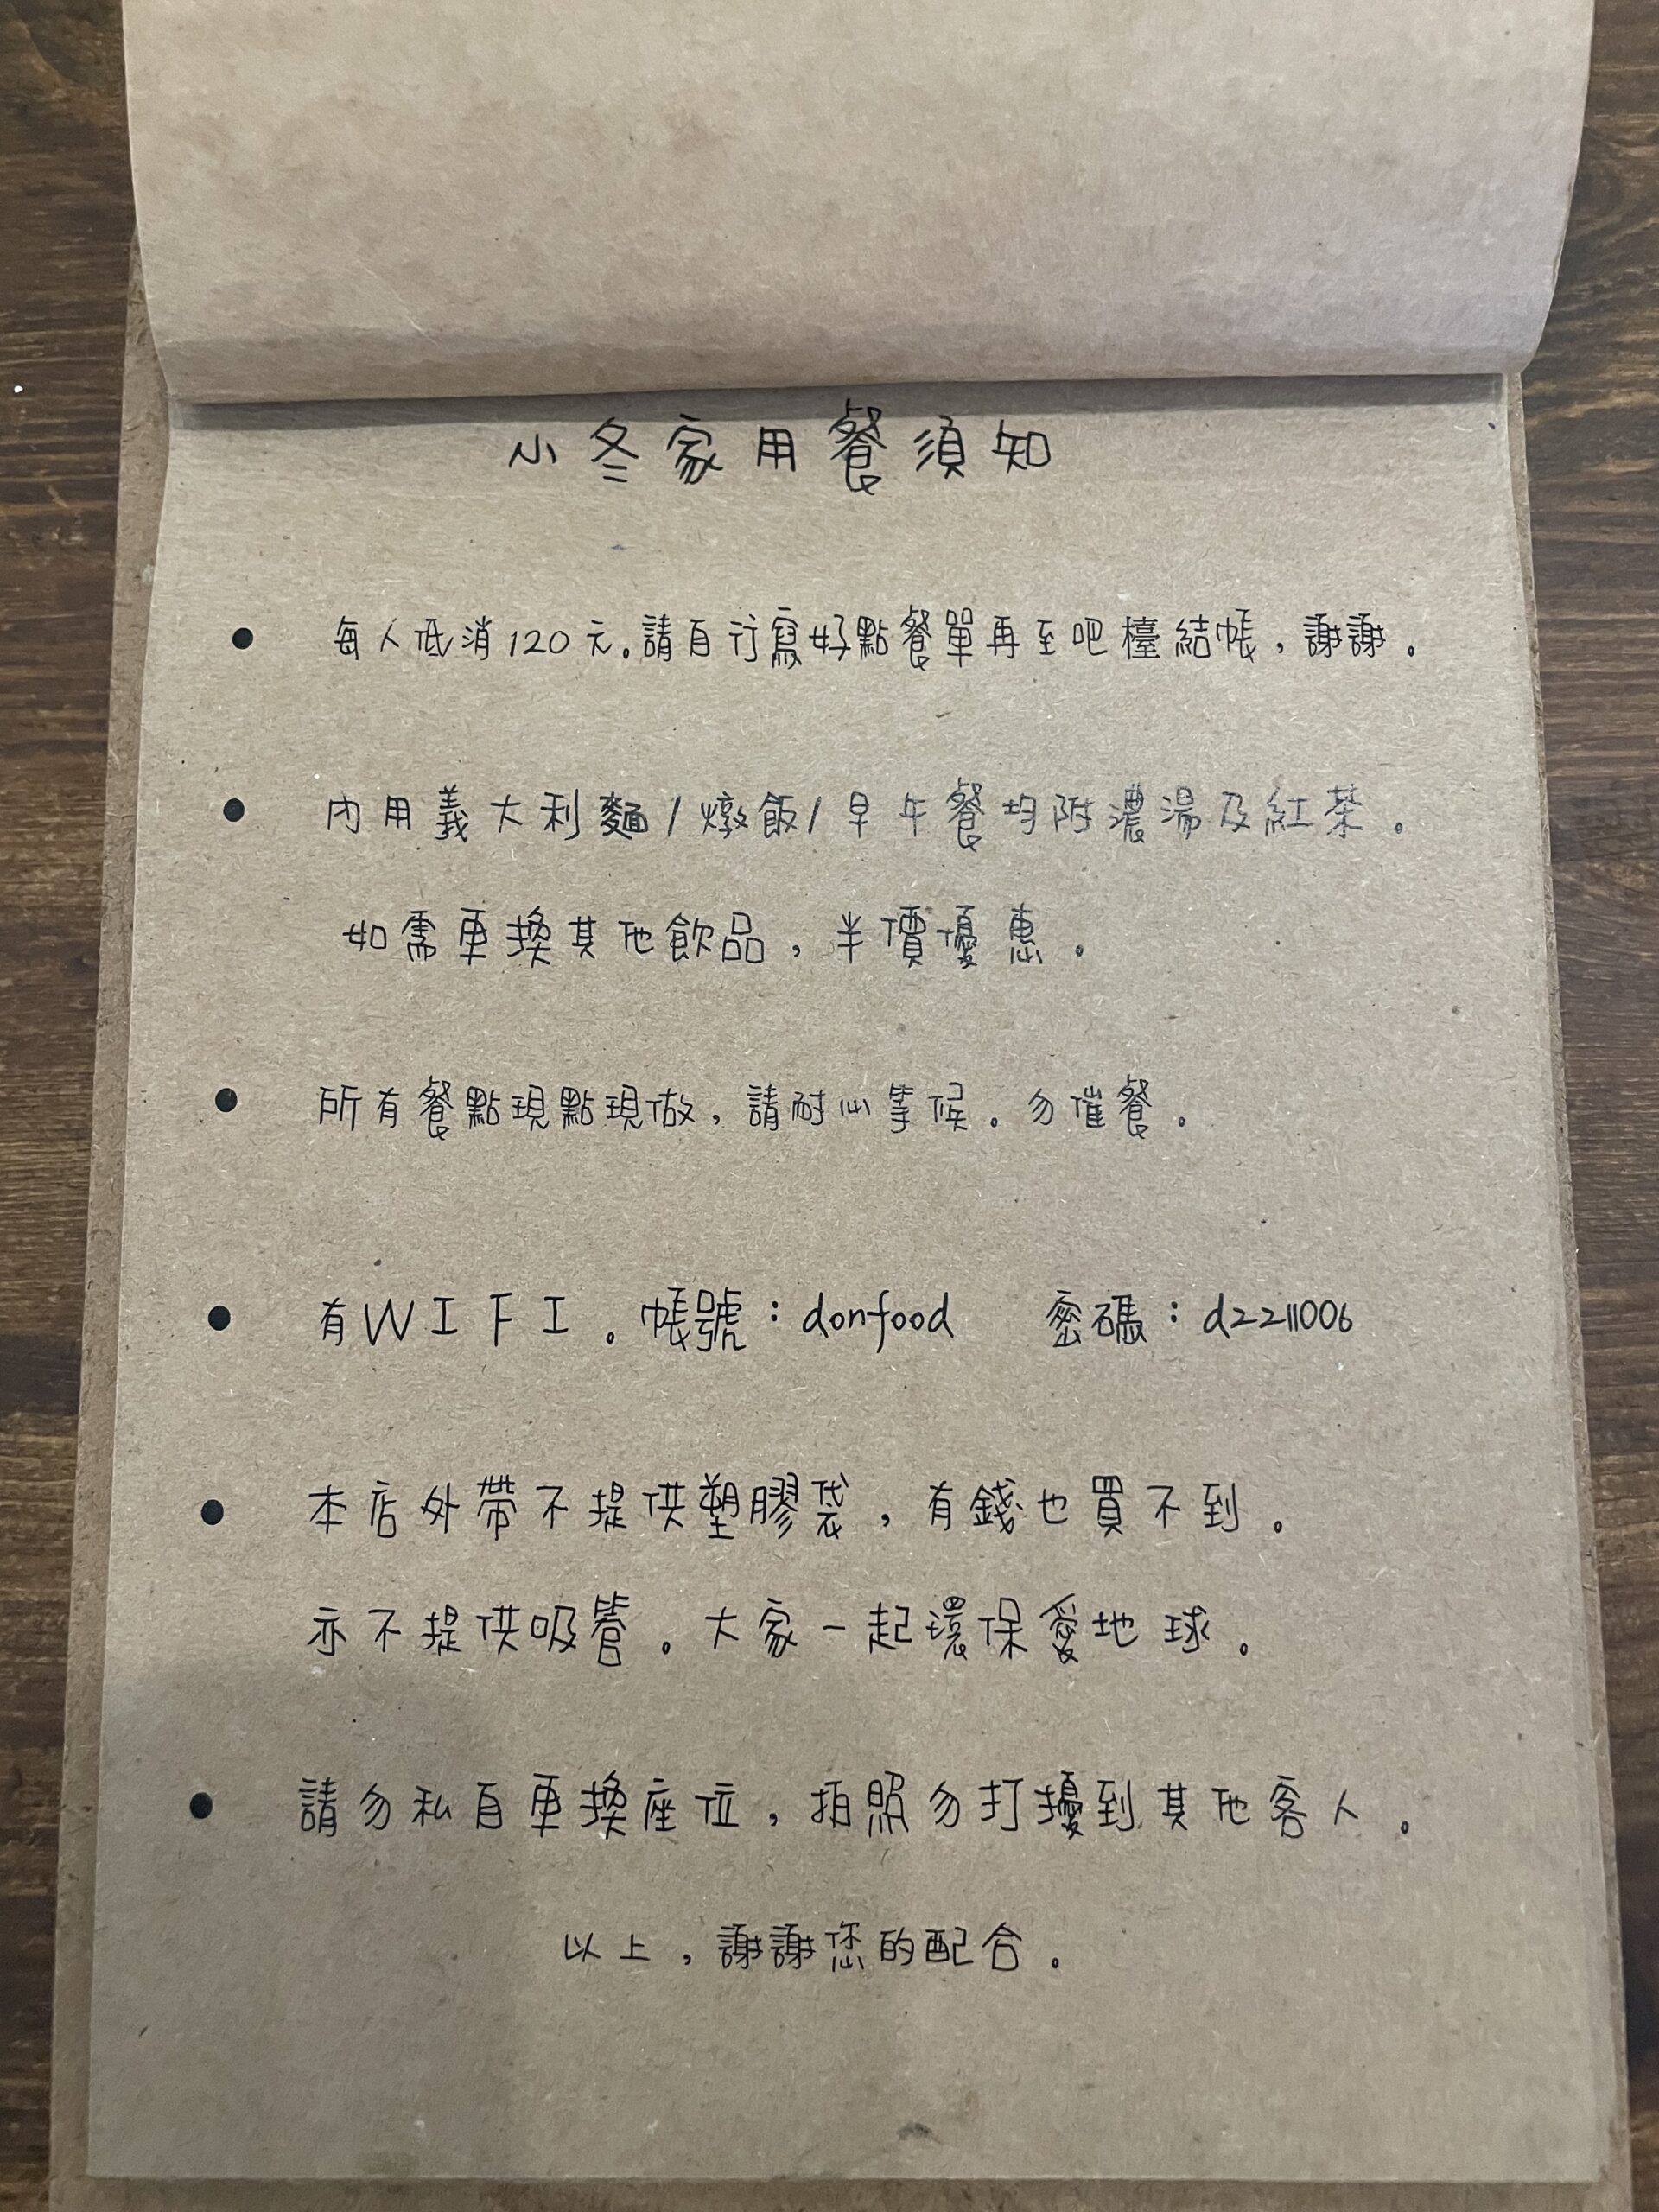 小冬家用餐須知
• 每人低消120元。請自行寫好點餐單再至吧檯結帳，謝謝。
• 內用義大利麵/燉飯/早午餐均附濃湯及紅茶。
如需更換其他飲品，半價優惠。
• 所有餐點現點現做，請耐心等候。勿催餐。
• 有WIFI。帳號：donfood 密碼：d2211006
• 本店外帶不提供塑膠袋，有錢也買不到。
亦不提供吸管。大家一起環保愛地球。
• 請勿私自更換座位，拍照勿打擾到其他客人。
以上，謝謝您的配合。